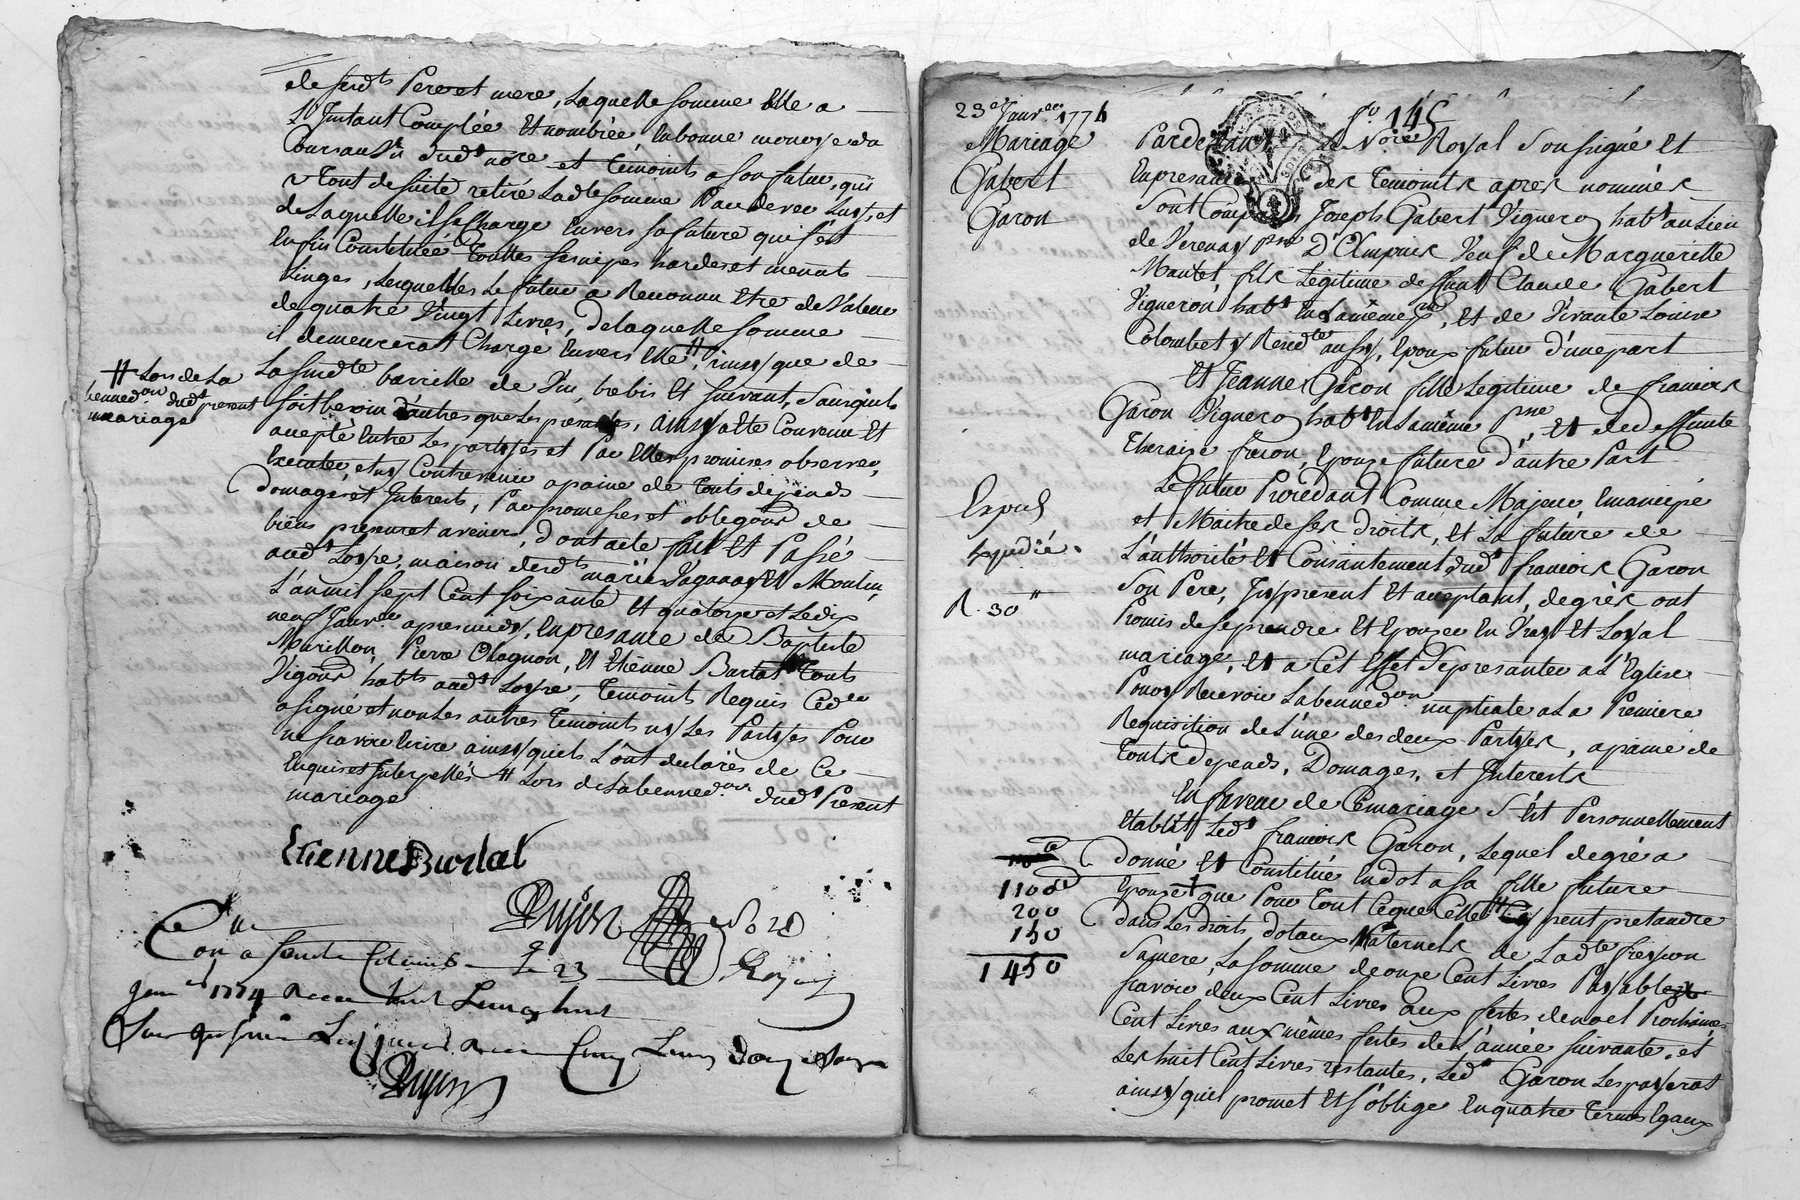 de ses dts Pere et mere, Laquelle somme Elle a
L'Instant Comptée Et nombrée En bonne monoye du
Cours au Vu dud t no re et Témoints a son futur, qui
tout de suite retiré Lad te somme
de Laquelle il se Charge Envers sa future qui s'est
Enfin Constituée touttes ses nipes hardes et menuts
Linges, Lesquelles Le futur a Reconnu Etre de Valeur
de quatre Vingt Livres, de laquelle somme
il demeurerat Chargé Envers Elle # ainsy que de
La susd te barrielle de Vin, brebis Et suivant, sans quil
soit besoin d'autres que Les presantes, ainsy a Eté Convenu Et
accepté Entre Les partyes et Par Elles promises observer,
Executer, et ny Contrevenir a paine de touts depends
domages et Interests, Par promesses et obligons de
biens presents et avenirs, dont acte fait Et Passé
aud t Loyre, maison desd ts mariés Et Moulin,
L'an mil sept Cent soixante Et quatorze et Le dix
neuf Janvier apres midy, En presance de Baptiste
Murillon, Pierre Olagnon, Et Etienne Burlat touts
Vigons habts aud t Loyre, temoints Requis Led er
a signé et non Les autres temoints ny Les Partyes Pour
ne scavoir Ecrire ainsy quils L'ont declarés de Ce
Enquis et Interpellés # Lors de La benned on dud t Present
mariage
# Lors de La
benned on dud t present
mariage
Etienne Burlat
Dujon
Con a Sainte Colombe Le 23
janer 1774 Receu huit
Dujon
23e Janv er 1774
Mariage
Gabert
Garon
fo 145
Pardevant Le No re Royal Soussigné Et
En presance des Temoints apres nommés
Sont Comparus Joseph Gabert Vigneron habt au Lieu
de Verenay p sse D'Ampuis Veuf de Margueritte
Mantet, fils Légitime de feu Claude Gabert
Vigneron habt En La même p sse, Et de Vivante Louise
Colombet y Resid te aussy, Epoux futur d'une part
Et Jeanne Garon fille Legitime de francois
Garon Vigneron habt En La même p sse, Et de deffunte
Theraize freson, Epouze future d'autre Part
Le futur Procedant Comme Majeur, Emancipé
et Maitre de ses droits, Et La future de
L'authorité Et Consantement dud t francois Garon
son Pere, Icy present Et acceptant, de grés ont
Promis de se prendre Et Epouzer En Vray Et Loyal
mariage, Et a Cet Effet se presanter a L'Eglise
Pour y Recevoir La benned on nuptiale a La Premiere
Requisition de L'une des deux Partyes, a paine de
touts depends, Domages, et Interests
En faveur de Ce mariage S'est Personnellement
Etablit Led t francois Garon, Lequel de gré a
donné Et Constitué En dot a sa fille future
Epouze que Pour tout Ce que Elle # peut pretandre
dans Les droits dotaux Maternels de Lad te freson
sa mere, La somme de onze Cent Livres Payable
scavoir deux Cent Livres aux festes de noel Prochaines
Cent Livres aux mêmes festes de L'année suivante, et
Les huit Cent Livres restantes, Led t Garon Les payerat
ainsy quil promet Et s'oblige En quatre termes Egaux
Expediée
R. 30 s
1100
200
150
1450